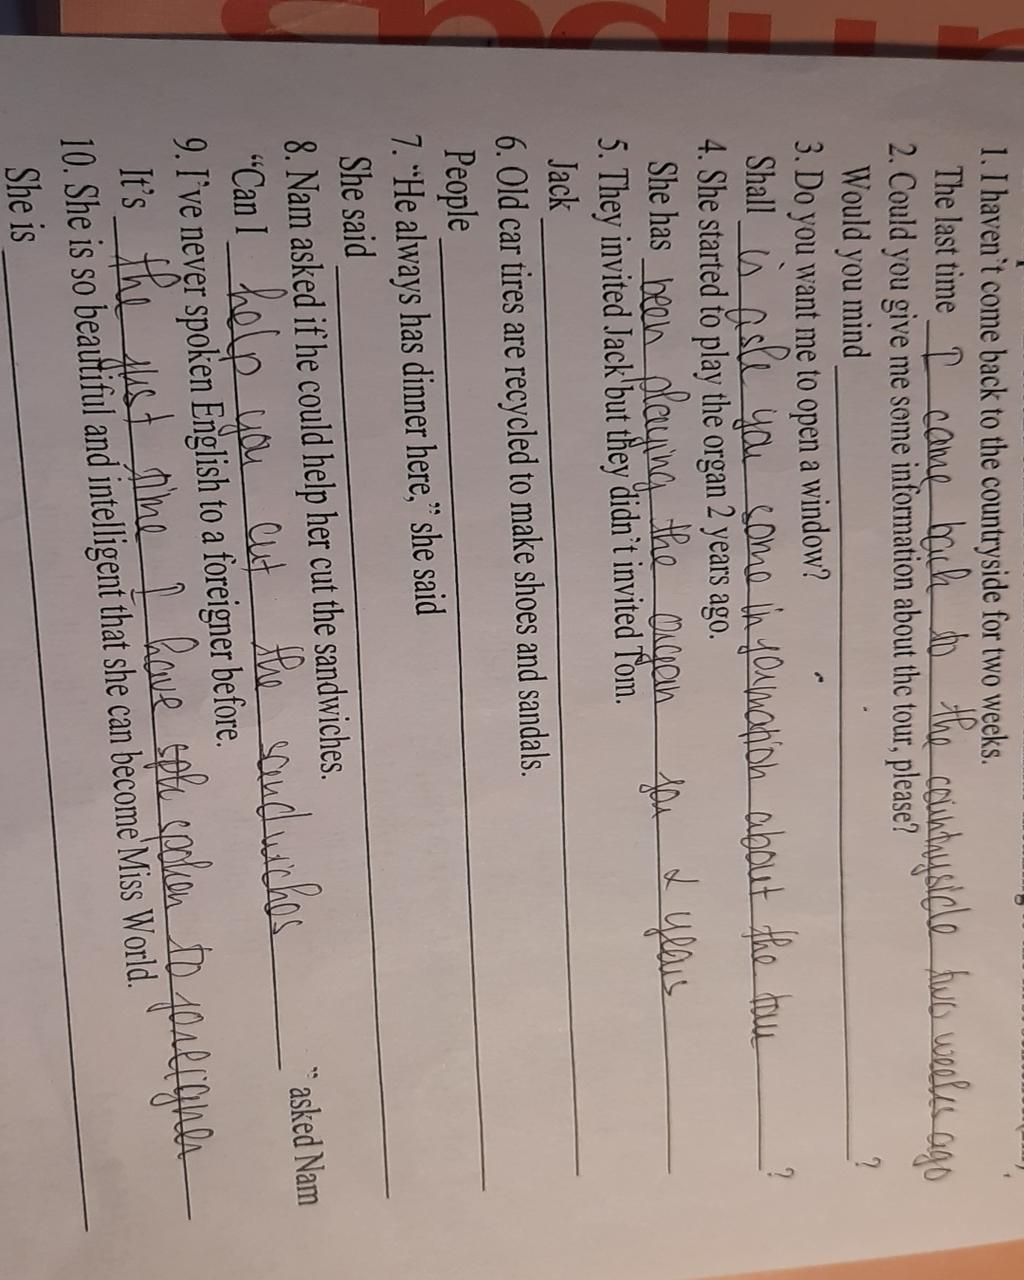 1. I haven't come back to the countryside for two weeks.
The last time I came back to the countryside two weeks ago
2. Could you give me some information about the tour, please?
Would you mind ?
3. Do you want me to open a window?
Shall is ask you some in about the tour ?
4. She started to play the organ 2 years ago.
She has been playing the organ for 2 years
5. They invited Jack but they didn't invited Tom.
Jack
6. Old car tires are recycled to make shoes and sandals.
People
7. "He always has dinner here," she said
She said
8. Nam asked if he could help her cut the sandwiches.
"Can I help you cut the sandwiches " asked Nam
9. I've never spoken English to a foreigner before.
It's the first time I have spoken to foreigner
10. She is so beautiful and intelligent that she can become Miss World.
She is